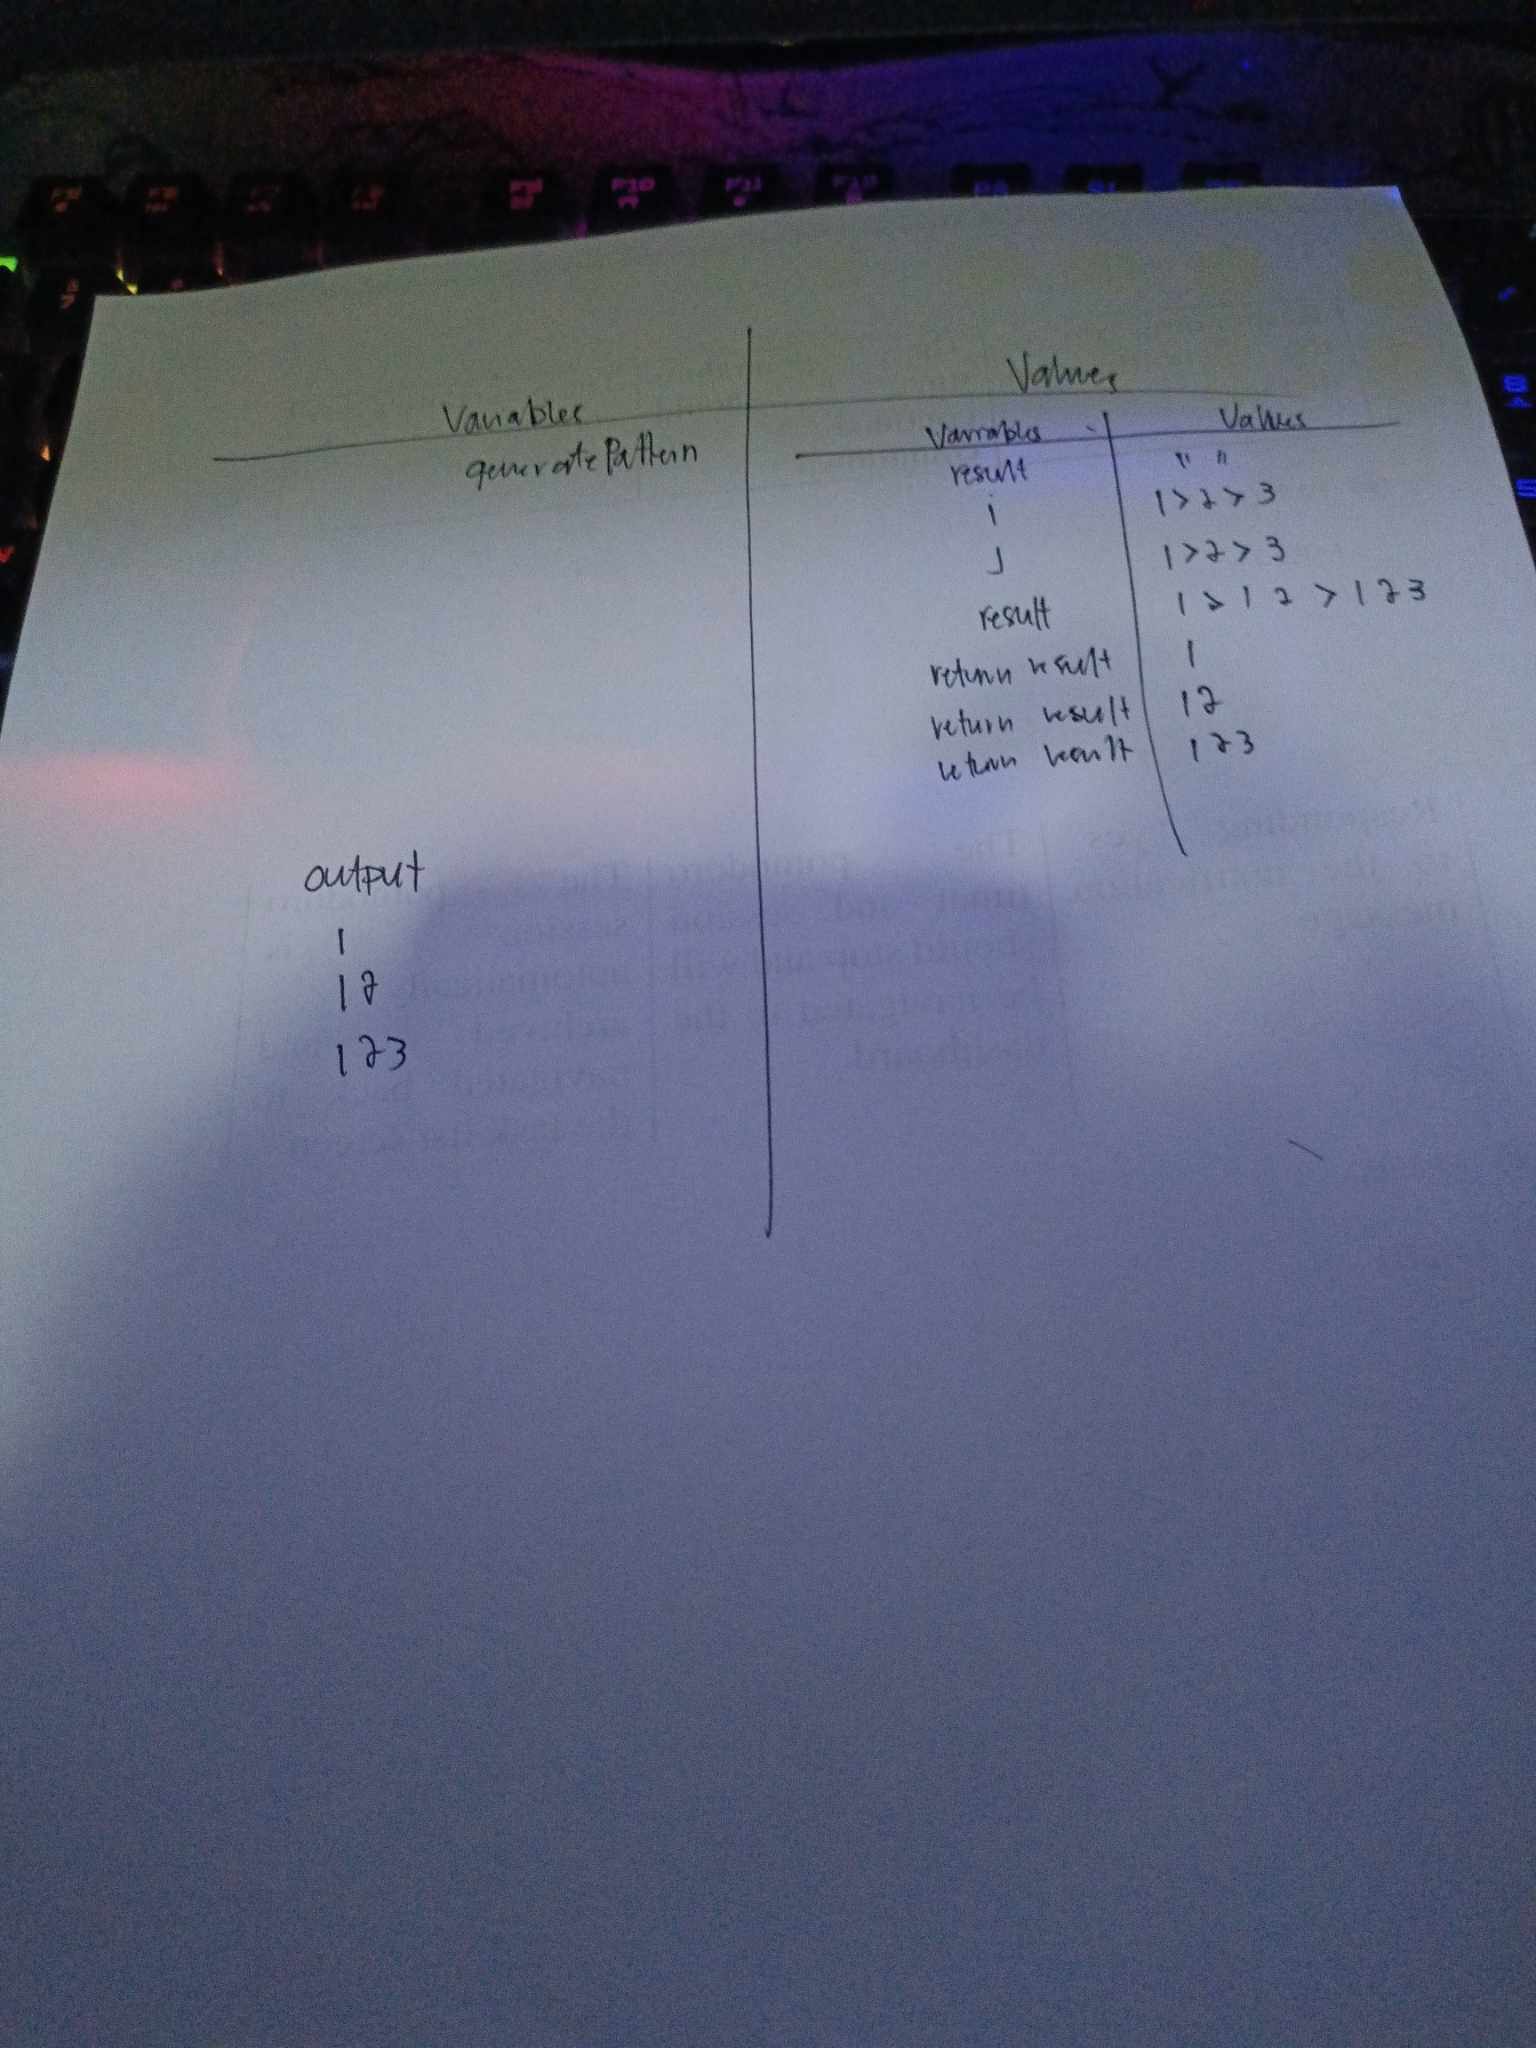 Variables
Values
generatePattern
Variables
Values
result
" "
i
1 > 2 > 3
J
1 > 2 > 3
result
1 > 1 2 > 1 2 3
return result
1
return result
1 2
return result
1 2 3
output
1
1 2
1 2 3